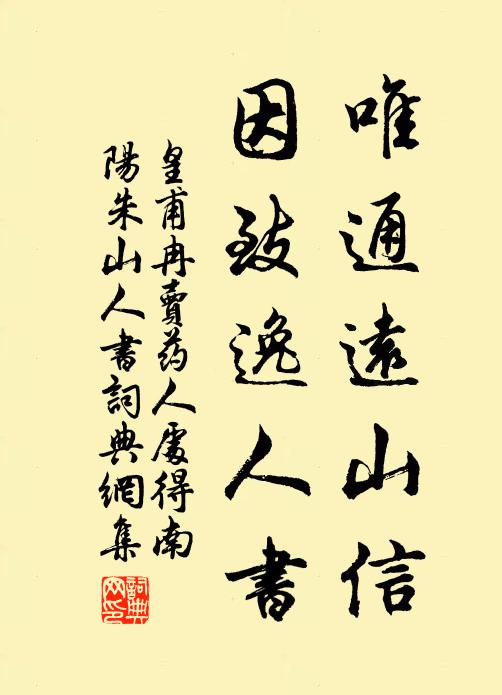 唯通遠山信
因致逸人書
皇甫冉賣药人處得南
陽朱山人書詞典網集